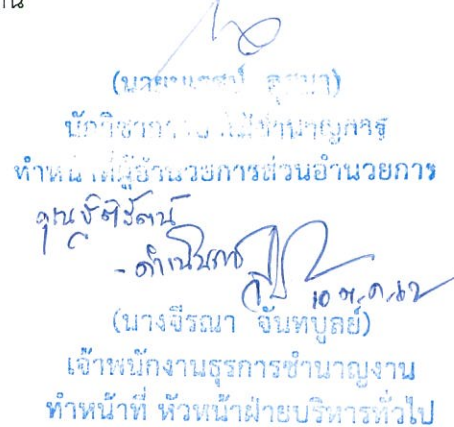 าน
นักวิชาการ
ทำหน้าที่ผู้อำนวยการส่วนอำนวยการ
คุณฐิติรัตน์
- ดำเนินการ
10 ต.ค. 62
(นางจีรณา จันทบูลย์)
เจ้าพนักงานธุรการชำนาญงาน
ทำหน้าที่ หัวหน้าฝ่ายบริหารทั่วไป